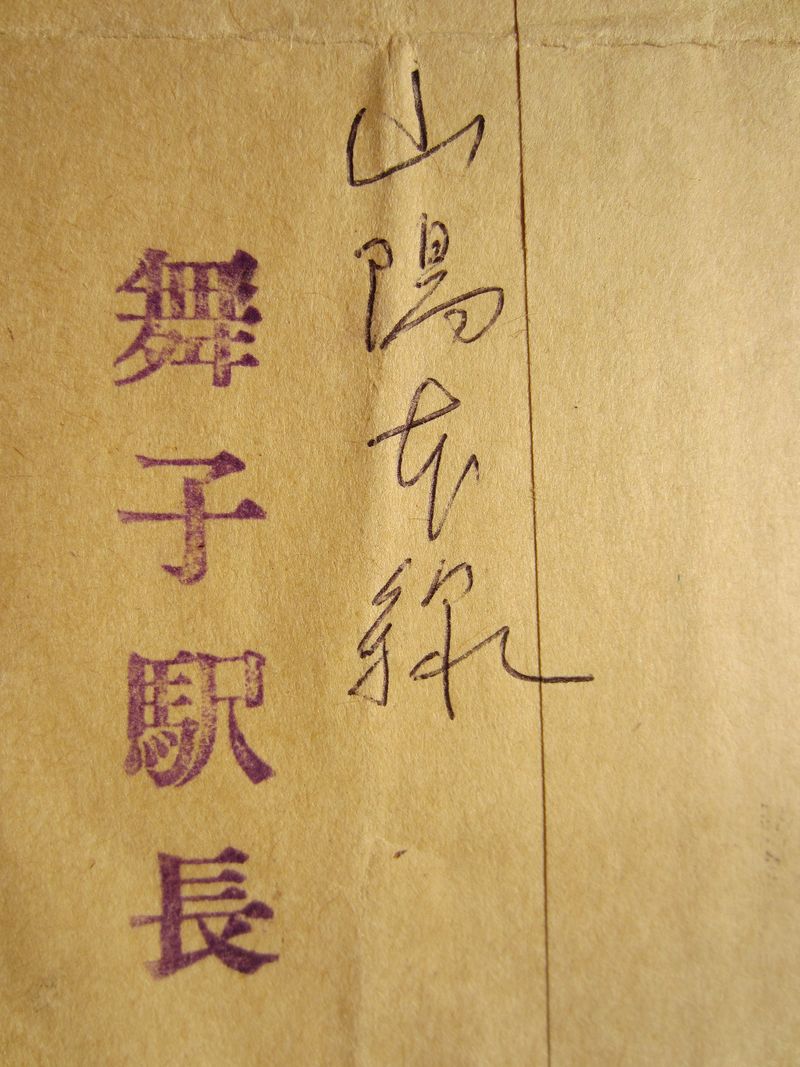 山陽本線
舞子駅長